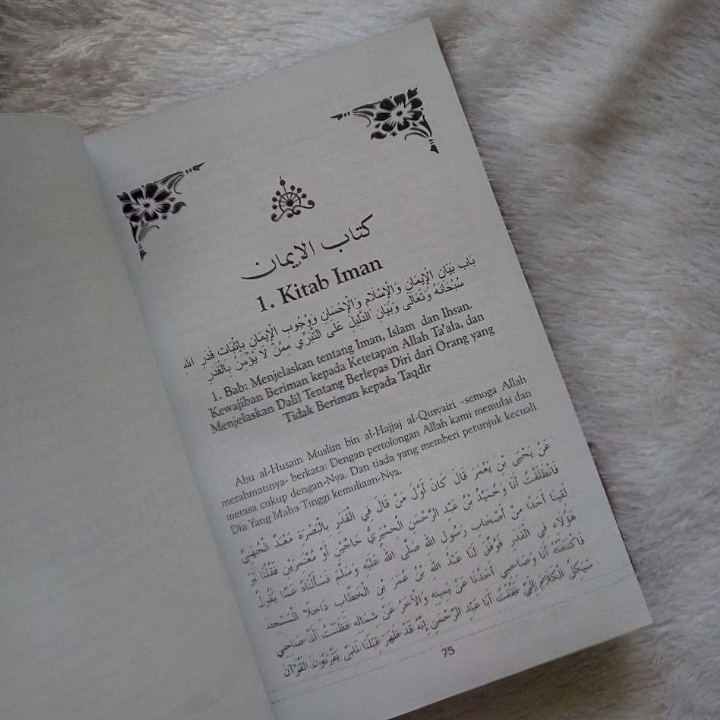 كتاب الإيمان
1. Kitab Iman
بَاب بَيَانِ الْإِيمَانِ وَالْإِسْلَامِ وَالْإِحْسَانِ وَوُجُوبِ الْإِيمَانِ بِإِثْبَاتِ قَدَرِ اللهِ
سُبْحَانَهُ وَتَعَالَى وَبَيَانِ الدَّلِيلِ عَلَى التَّبَرِّي مِمَّنْ لَا يُؤْمِنُ بِالْقَدَرِ
1. Bab: Menjelaskan tentang Iman, Islam dan Ihsan.
Kewajiban Beriman kepada Ketetapan Allah Ta'ala, dan
Menjelaskan Dalil Tentang Berlepas Diri dari Orang yang
Tidak Beriman kepada Taqdir
Abu al-Husain Muslim bin al-Hajjaj al-Qusyairi -semoga Allah
merahmatinya- berkata: Dengan pertolongan Allah kami memulai dan
merasa cukup dengan-Nya. Dan tiada yang memberi petunjuk kecuali
Dia Yang Maha Tinggi kemuliaan-Nya.
عَنْ يَحْيَى بْنِ يَعْمَرَ قَالَ كَانَ أَوَّلَ مَنْ قَالَ فِي الْقَدَرِ بِالْبَصْرَةِ مَعْبَدٌ الْجُهَنِيُّ
فَانْطَلَقْتُ أَنَا وَحُمَيْدُ بْنُ عَبْدِ الرَّحْمَنِ الْحِمْيَرِيُّ حَاجَّيْنِ أَوْ مُعْتَمِرَيْنِ فَقُلْنَا لَوْ
لَقِينَا أَحَدًا مِنْ أَصْحَابِ رَسُولِ اللهِ صَلَّى اللهُ عَلَيْهِ وَسَلَّمَ فَسَأَلْنَاهُ عَمَّا يَقُولُ
هَؤُلَاءِ فِي الْقَدَرِ فَوُفِّقَ لَنَا عَبْدُ اللهِ بْنُ عُمَرَ بْنِ الْخَطَّابِ دَاخِلًا الْمَسْجِدَ
فَاكْتَنَفْتُهُ أَنَا وَصَاحِبِي أَحَدُنَا عَنْ يَمِينِهِ وَالْآخَرُ عَنْ شِمَالِهِ فَظَنَنْتُ أَنَّ صَاحِبِي
سَيَكِلُ الْكَلَامَ إِلَيَّ فَقُلْتُ أَبَا عَبْدِ الرَّحْمَنِ إِنَّهُ قَدْ ظَهَرَ قِبَلَنَا نَاسٌ يَقْرَءُونَ الْقُرْآنَ
75